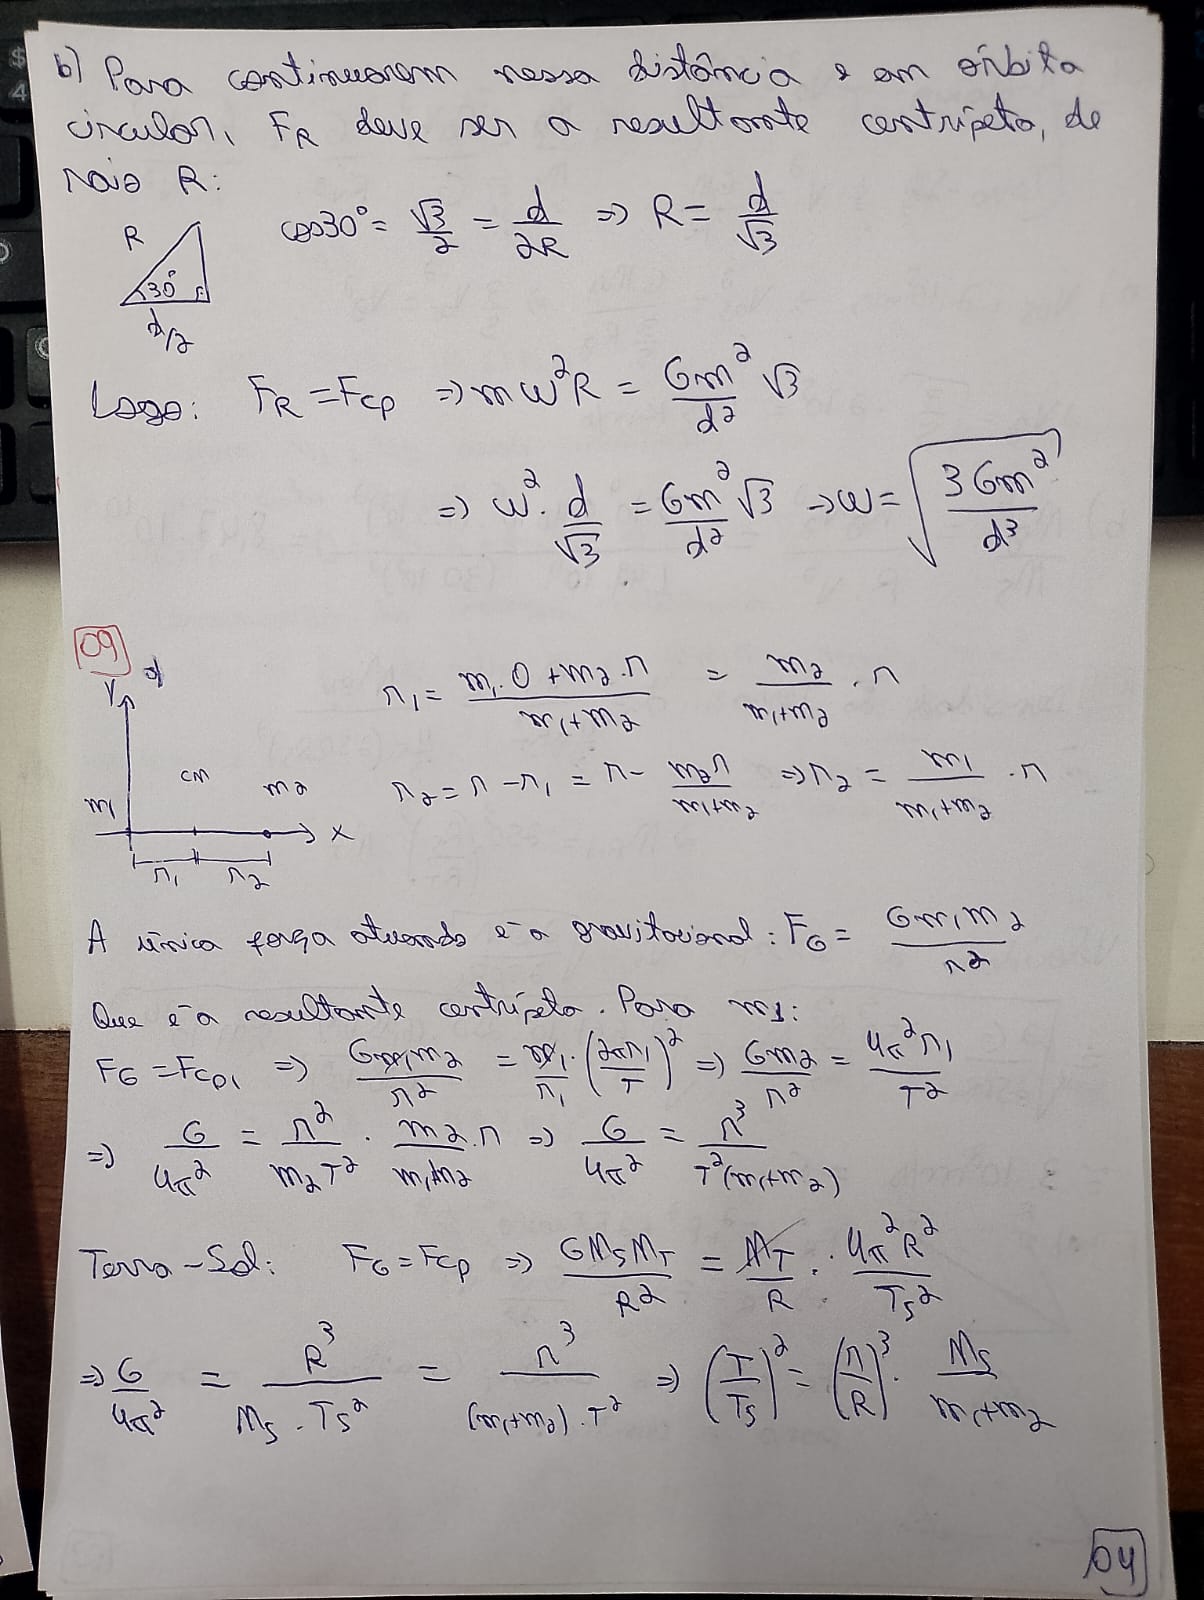 b) Para continuarem nessa distância e em órbita
circular, FR deve ser a resultante centrípeta, de
raio R:
R 30° d/2 cos30° = √3/2 = d/2R => R = d/√3
Logo: FR = Fcp => mω²R = Gm²/d² √3
=> ω² . d/√3 = Gm²/d² √3 -> ω = √(3Gm²/d³)
09 a)
y r₁ = (m₁.0 + m₂.r)/(m₁+m₂) = m₂/(m₁+m₂) . r
m₁ CM m₂ x r₂ = r - r₁ = r - m₂r/(m₁+m₂) => r₂ = m₁/(m₁+m₂) . r
r₁ r₂
A única força atuando é a gravitacional: FG = Gm₁m₂/r²
Que é a resultante centrípeta. Para m1:
FG = Fcp₁ => Gm₁m₂/r² = m₁/r₁ . (2πr₁/T)² => Gm₂/r² = 4π²r₁/T²
=> G/4π² = r²/m₂T² . m₂.r/m₁+m₂ => G/4π² = r³/T²(m₁+m₂)
Terra-Sol: FG = Fcp => GMsMT/R² = MT/R . 4π²R²/Ts²
=> G/4π² = R³/Ms.Ts² = r³/(m₁+m₂).T² => (T/Ts)² = (r/R)³ . Ms/m₁+m₂
04
$
4